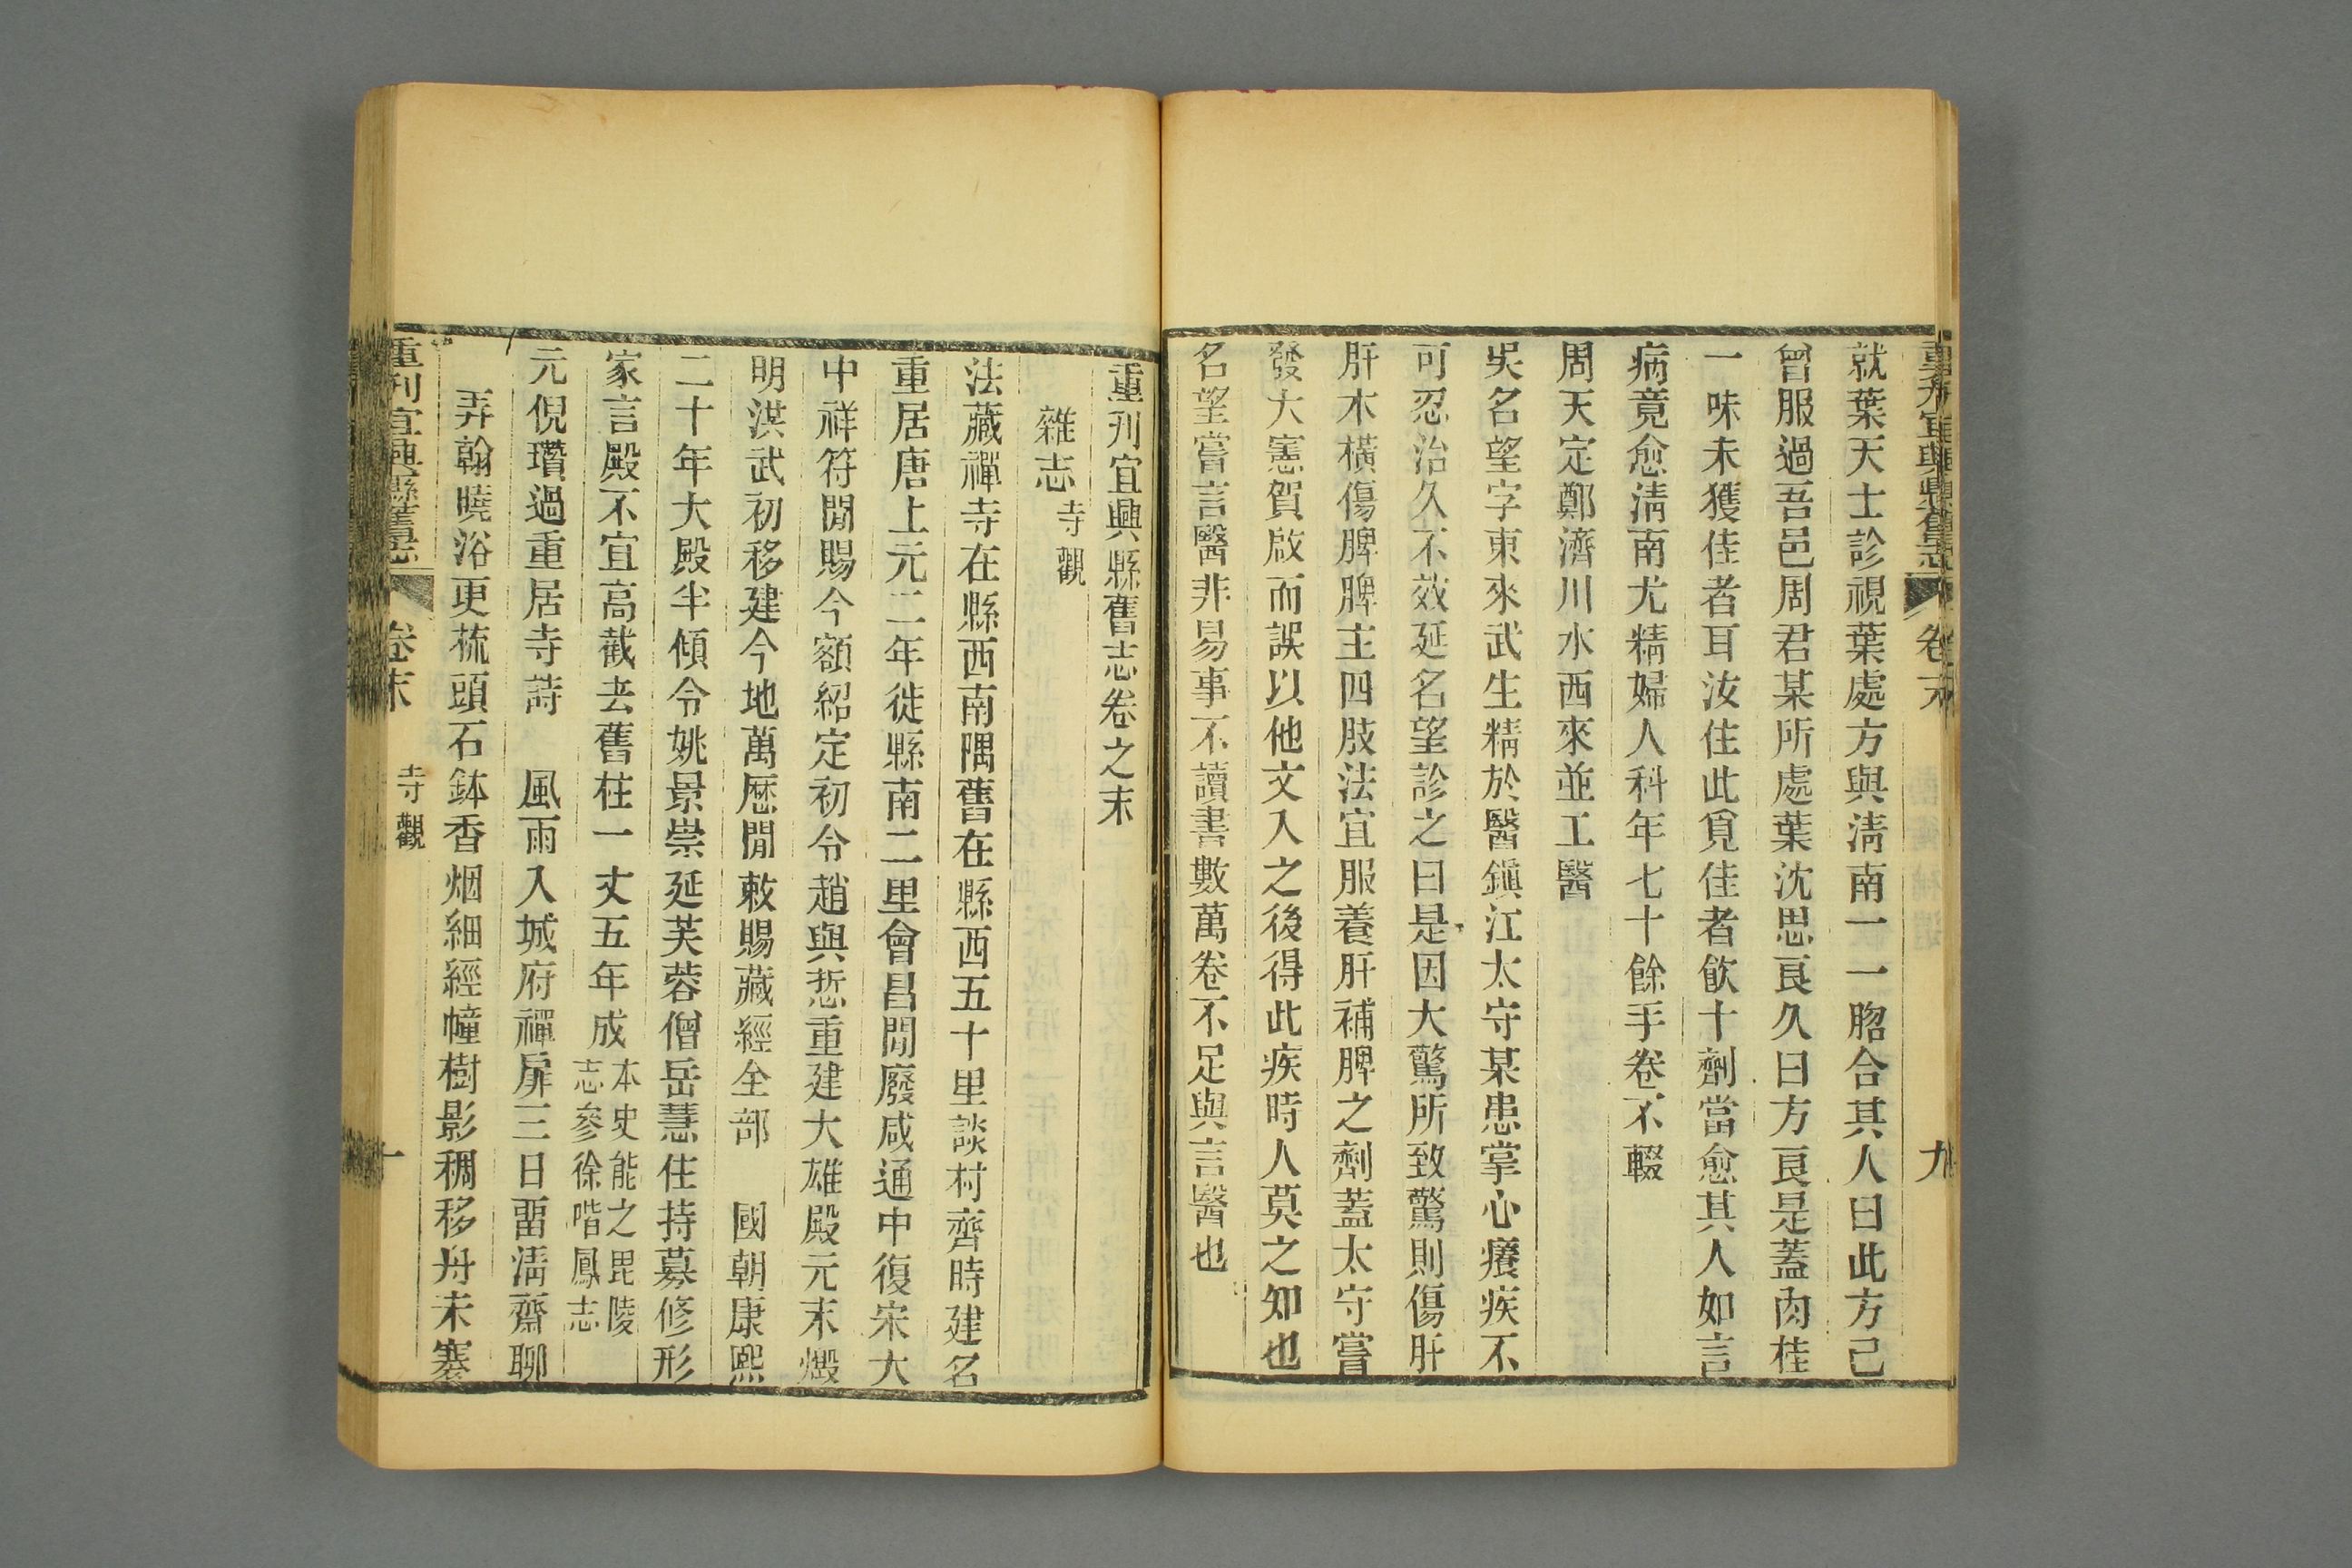 重刊宜興縣舊志 卷末 九
就葉天士診視葉處方與淸南一一脗合其人曰此方已
曾服過吾邑周君某所處葉沈思良久曰方良是蓋肉桂
一味未獲佳者耳汝住此覓佳者飮十劑當愈其人如言
病竟愈淸南尤精婦人科年七十餘手卷不輟
周天定鄭濟川水西來並工醫
吳名望字東來武生精於醫鎭江太守某患掌心癢疾不
可忍治久不效延名望診之曰是因大驚所致驚則傷肝
肝木橫傷脾脾主四肢法宜服養肝補脾之劑蓋太守嘗
發大憲賀啟而誤以他文入之後得此疾時人莫之知也
名望嘗言醫非易事不讀書數萬卷不足與言醫也
重刊宜興縣舊志卷之末
雜志 寺觀
法藏禪寺在縣西南隅舊在縣西五十里談村齊時建名
重居唐上元二年徙縣南二里會昌閒廢咸通中復宋大
中祥符閒賜今額紹定初令趙與悊重建大雄殿元末燬
明洪武初移建今地萬厯閒敕賜藏經全部 國朝康熙
二十年大殿半傾令姚景崇延芙蓉僧岳慧住持募修形
家言殿不宜高截去舊柱一丈五年成 本史能之毘陵
志參徐喈鳳志
元倪瓚過重居寺詩 風雨入城府禪扉三日畱淸齋聊
弄翰曉浴更梳頭石鉢香烟細經幢樹影稠移舟未蹇
重刊宜興縣舊志 卷末 寺觀 十